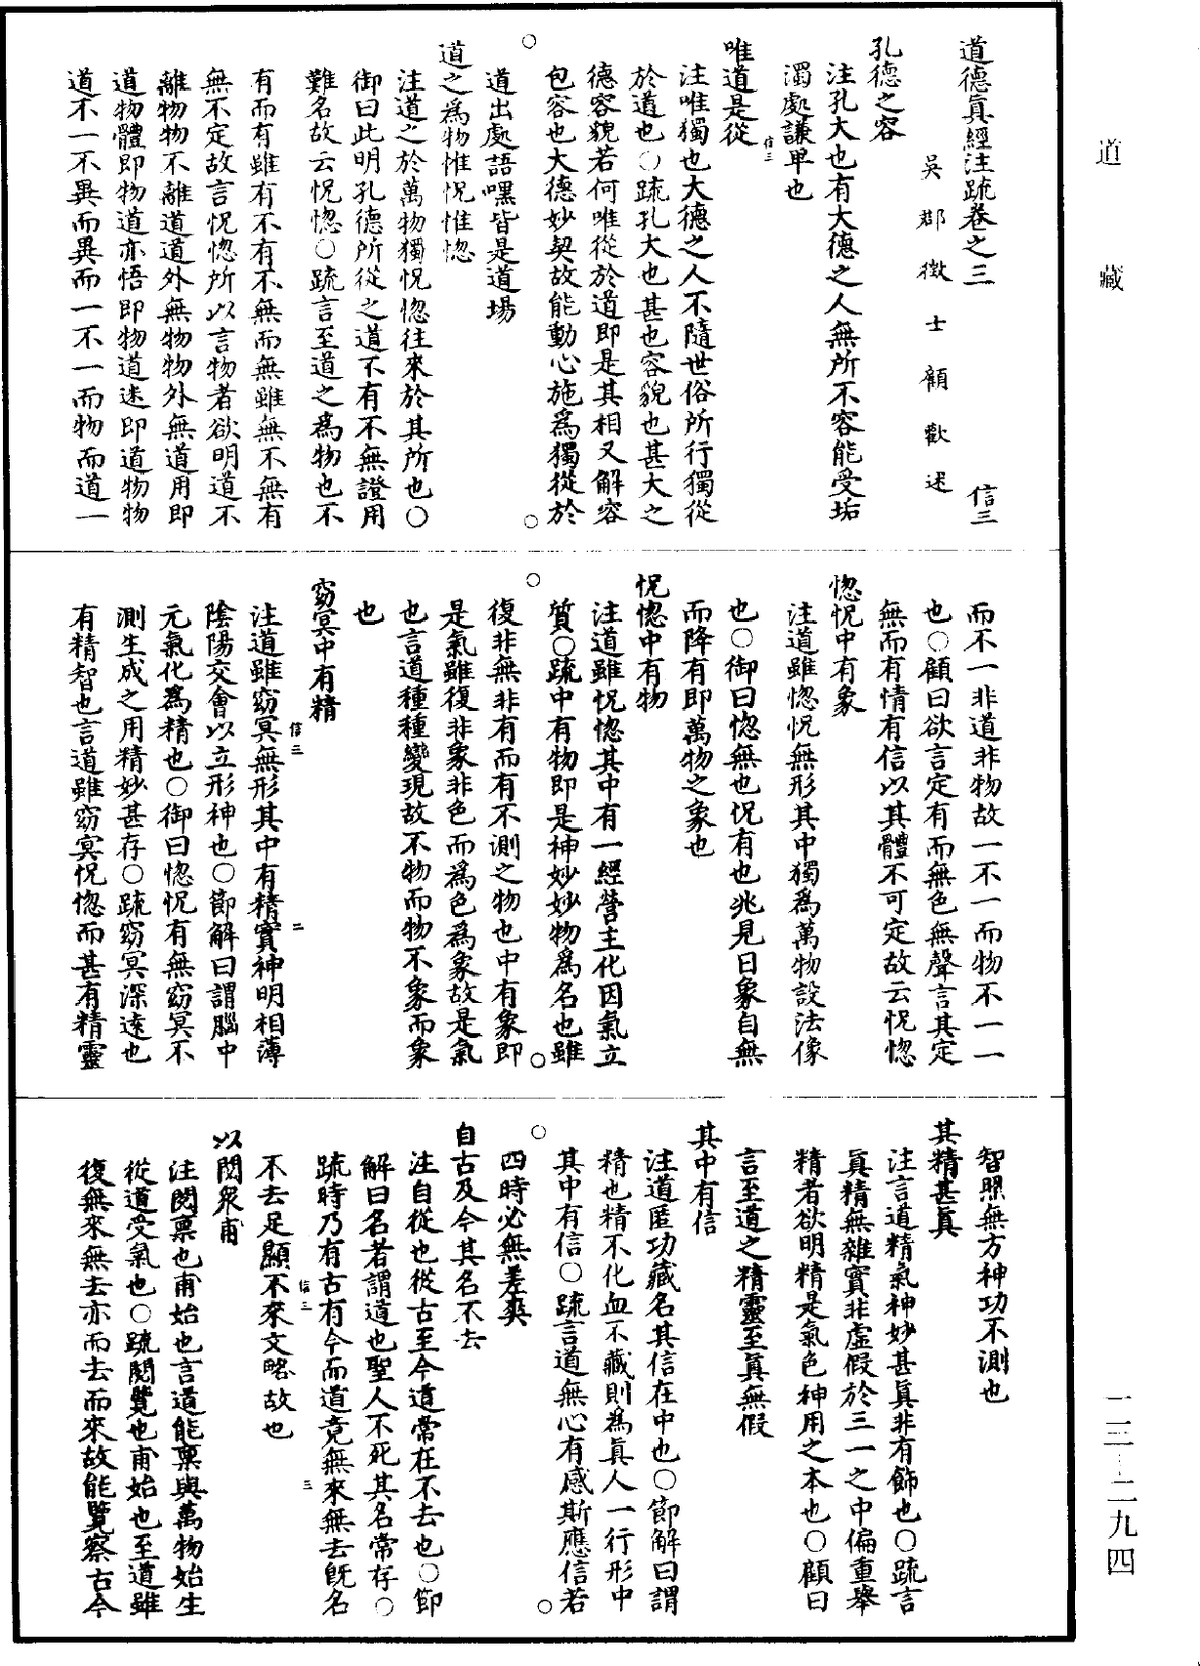 道藏
一三-二九四
道德眞經注疏卷之三 信三
吳郡徵士顧歡述
孔德之容
注孔大也有大德之人無所不容能受垢
濁處謙卑也
唯道是從
信三
注唯獨也大德之人不隨世俗所行獨從
於道也○疏孔大也甚也容貌也甚大之
德容貌若何唯從於道即是其相又解容
包容也大德妙契故能動心施爲獨從於
道出處語嘿皆是道場
道之爲物惟怳惟惚
注道之於萬物獨怳惚往來於其所也○
御曰此明孔德所從之道不有不無證用
難名故云怳惚○疏言至道之爲物也不
有而有雖有不有不無而無雖無不無有
無不定故言怳惚所以言物者欲明道不
離物物不離道道外無物物外無道用即
道物體即物道亦悟即物道迷即道物物
道不一不異而異而一不一而物而道一
而不一非道非物故一不一而物不一一
也○顧曰欲言定有而無色無聲言其定
無而有情有信以其體不可定故云怳惚
惚怳中有象
注道雖惚怳無形其中獨爲萬物設法像
也○御曰惚無也怳有也兆見曰象自無
而降有即萬物之象也
怳惚中有物
注道雖怳惚其中有一經營主化因氣立
質○疏中有物即是神妙妙物爲名也雖
復非無非有而有不測之物也中有象即
是氣雖復非象非色而爲色爲象故是氣
也言道種種變現故不物而物不象而象
也
窈冥中有精
信三
二
注道雖窈冥無形其中有精實神明相薄
陰陽交會以立形神也○節解曰謂腦中
元氣化爲精也○御曰惚怳有無窈冥不
測生成之用精妙甚存○疏窈冥深遠也
有精智也言道雖窈冥怳惚而甚有精靈
智照無方神功不測也
其精甚眞
注言道精氣神妙甚眞非有飾也○疏言
眞精無雜實非虛假於三一之中偏重舉
精者欲明精是氣色神用之本也○顧曰
言至道之精靈至眞無假
其中有信
注道匿功藏名其信在中也○節解曰謂
精也精不化血不藏則爲眞人一行形中
其中有信○疏言道無心有感斯應信若
四時必無差爽
自古及今其名不去
注自從也從古至今道常在不去也○節
解曰名者謂道也聖人不死其名常存○
疏時乃有古有今而道竟無來無去旣名
信三
三
不去足顯不來文略故也
以閱衆甫
注閱稟也甫始也言道能稟與萬物始生
從道受氣也○疏閱覽也甫始也至道雖
復無來無去亦而去而來故能覽察古今